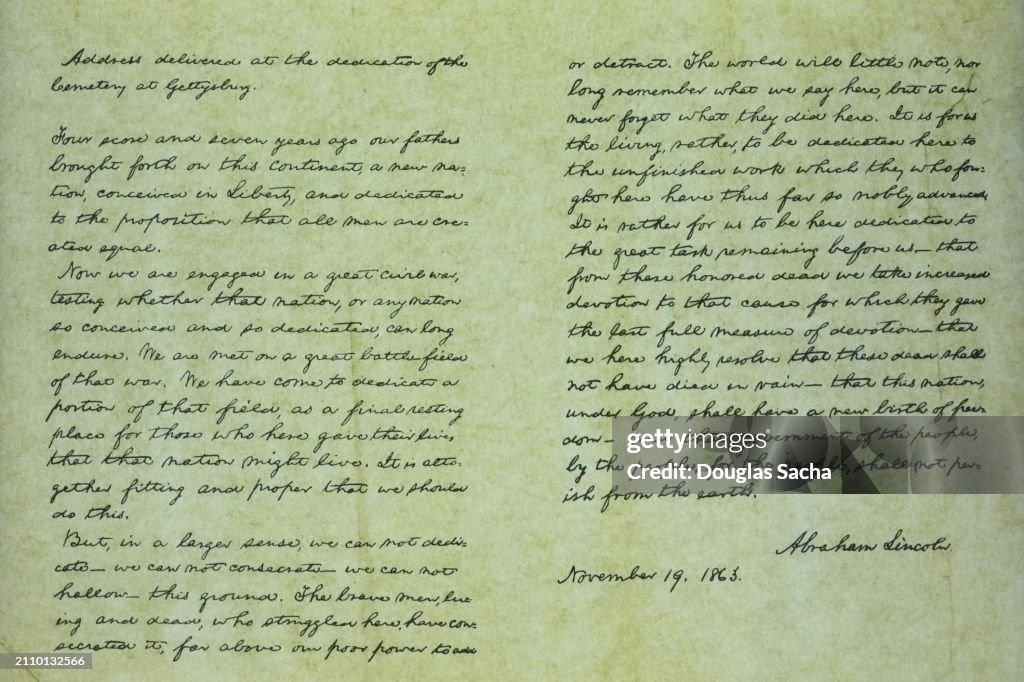 Address delivered at the dedication of the
Cemetery at Gettysburg.
Four score and seven years ago our fathers
brought forth on this continent, a new na-
tion, conceived in Liberty, and dedicated
to the proposition that all men are cre-
ated equal.
Now we are engaged in a great civil war,
testing whether that nation, or any nation
so conceived and so dedicated, can long
endure. We are met on a great battle-field
of that war. We have come to dedicate a
portion of that field, as a final resting
place for those who here gave their lives
that that nation might live. It is alto-
gether fitting and proper that we should
do this.
But, in a larger sense, we can not dedi-
cate— we can not consecrate— we can not
hallow— this ground. The brave men, liv-
ing and dead, who struggled here, have con-
secrated it, far above our poor power to add
or detract. The world will little note, nor
long remember what we say here, but it can
never forget what they did here. It is for us
the living, rather, to be dedicated here to
the unfinished work which they who fou-
ght here have thus far so nobly advanced.
It is rather for us to be here dedicated to
the great task remaining before us— that
from these honored dead we take increased
devotion to that cause for which they gave
the last full measure of devotion— that
we here highly resolve that these dead shall
not have died in vain— that this nation,
under God, shall have a new birth of free-
dom— government of the people,
by the shall not per-
ish from the earth.
Abraham Lincoln.
November 19, 1863.
gettyimages
Credit: Douglas Sacha
2110132566